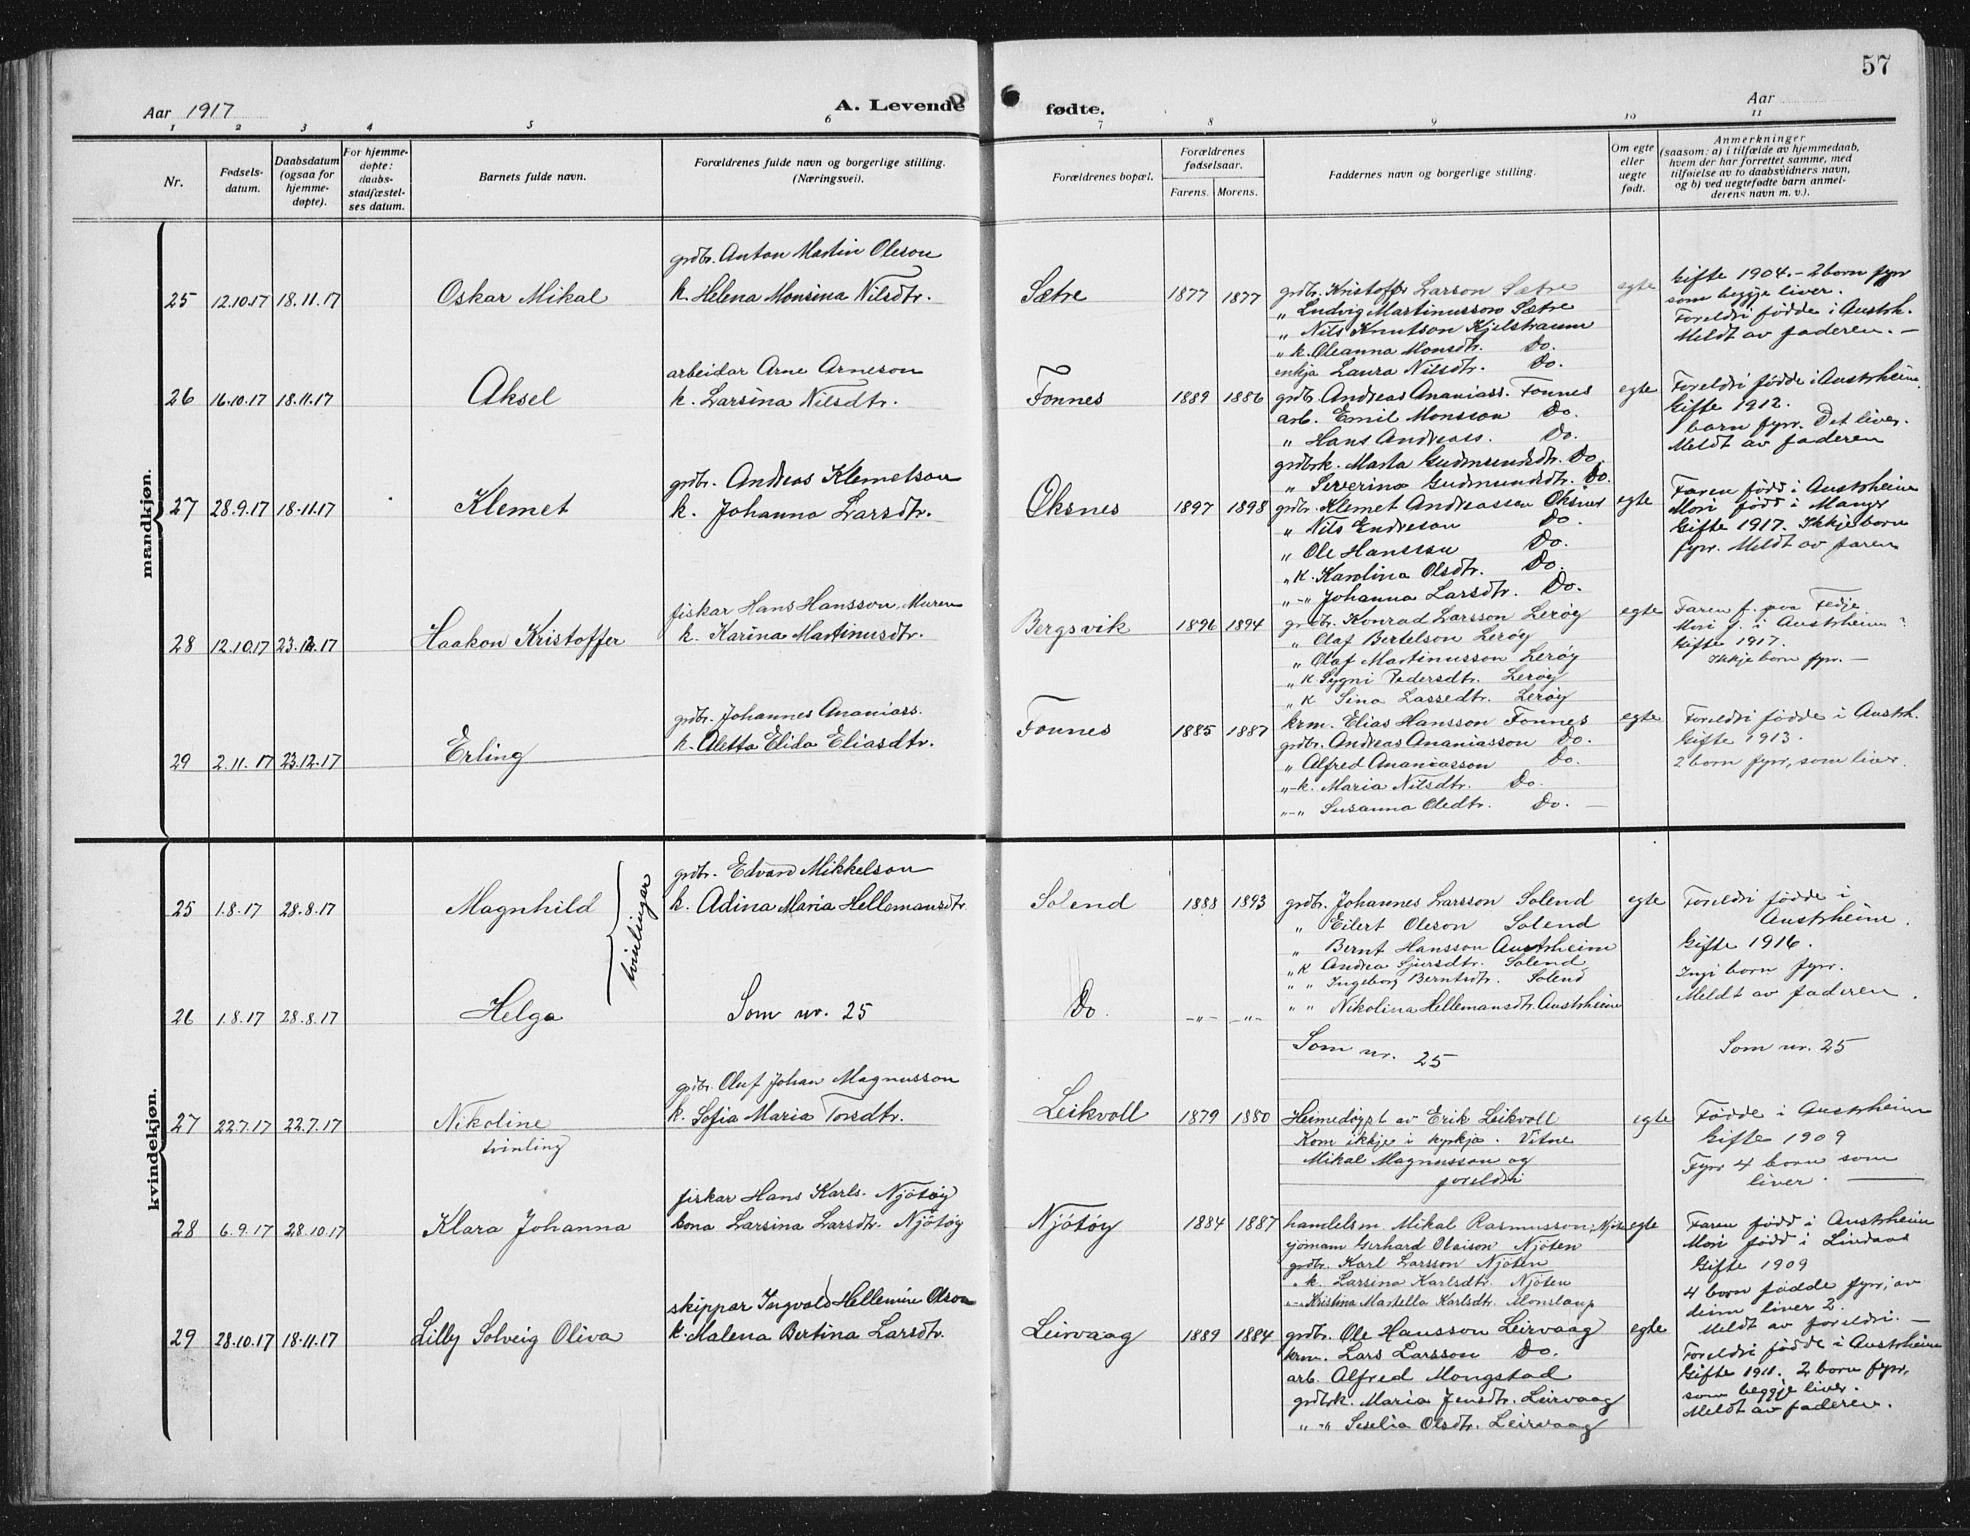 57
Aar 1917
A. Levende fødte.
Aar
1 2 3 4 5 6 7 8 9 10 11
Nr.
Fødsels-
datum.
Daabsdatum
(ogsaa for
hjemme-
døpte).
For hjemme-
døpte:
daabs-
stadfæstel-
ses datum.
Barnets fulde navn.
Forældrenes fulde navn og borgerlige stilling.
(Næringsvei).
Forældrenes bopæl.
Forældrenes
fødselsaar.
Farens. Morens.
Faddernes navn og borgerlige stilling.
Om egte
eller
uegte
født.
Anmerkninger
(saasom: a) i tilfælde av hjemmedaab,
hvem der har forrettet samme, med
tilføielse av to daabsvidners navn,
og b) ved uegtefødte barn anmel-
derens navn m. v.).
mandkjøn.
25 12.10.17 18.11.17 Oskar Mikal
grdbr. Anton Martin Oleson
k. Helena Monsina Nilsdtr.
Sætre 1877 1877
grdbr. Kristoffer Larson Sætre
„ Ludvig Martinusson Sætre
„ Nils Knutson Kjelstraum
„ k. Oleanna Monsdtr. Do.
enkja Laura Nilsdtr. Do.
egte
Gifte 1904. - 2 born fyrr
som beggje liver.
Foreldri fødde i Austrh.
Meldt av faderen. -
26 16.10.17 18.11.17 Aksel
arbeidar Arne Arneson
k. Larsina Nilsdtr.
Fonnes 1889 1886
grdbr. Andreas Ananiass. Fonnes
arb. Emil Monsson Do.
„ Hans Andreass. Do.
grdbrk. Marta Gudmundsdtr. Do.
„ Severina Gudmundsdtr. Do.
egte
Foreldri fødde i Austrheim.
Gifte 1912.
born fyrr. Det liver.
Meldt av faderen
27 28.9.17 18.11.17 Klemet
grdbr. Andreas Klemetson
k. Johanna Larsdtr.
Oksnes 1897 1898
grdbr. Klemet Andreasson Oksnes
„ Nils Endreson Do.
„ Ole Hansson Do.
„ k. Karolina Olsdtr. Do.
„ -„- Johanna Larsdtr. Do.
egte
Faren fødd i Austrheim
Mori fødd i Manger
Gifte 1917. Ikkje born
fyrr. Meldt av faren
28 12.10.17 23.12.17 Haakon Kristoffer
fiskar Hans Hansson, Muren
k. Karina Martinusdtr.
Bergsvik 1896 1894
grdbr. Konrad Larsson Lerøy
„ Olaf Bertelson Lerøy
„ Olaf Martinusson Lerøy
„ k. Sygni Pedersdtr. Lerøy
„ k Sina Lassedtr. Lerøy
egte
Faren f. paa Fedje
Mori f. i Austrheim
Gifte 1917.
Ikkje born fyrr. -
29 2.11.17 23.12.17 Erling
grdbr. Johannes Ananiass.
k. Aletta Elida Eliasdtr.
Fonnes 1885 1887
krm. Elias Hansson Fonnes
grdbr. Andreas Ananiasson Do.
„ Alfred Ananiasson Do.
„-k. Maria Nilsdtr. Do.
„-„ Susanna Oledtr. Do. -
egte
Foreldri fødde i Austrh.
Gifte 1913.
2 born fyrr, som liver.
kvindekjøn.
25 1.8.17 28.8.17 Magnhild
tvinlingar
grdbr. Edvard Mikkelson
k. Adina Maria Hellemansdtr
Solend 1888 1893
grdbr. Johannes Larsson Solend
„ Eilert Oleson Solend
„ Bernt Hansson Austrheim
„ k Andrea Sjursdtr. Solend
„ „ Ingeborg Berntsdtr. Solend
„ „ Nikolina Hellemansdtr. Austrheim
egte
Foreldri fødde i
Austrheim.
Gifte 1916.
Ingi born fyrr.
Meldt av faderen.
26 1.8.17 28.8.17 Helga
Som nr. 25
Do. -„- -„-
Som nr. 25
Som nr. 25
27 22.7.17 22.7.17 Nikoline
tvinling
grdbr. Oluf Johan Magnusson
k. Sofia Maria Torsdtr.
Leikvoll 1879 1880
Heimedøypt av Erik Leikvoll
Kom ikkje i kyrkja. Vitne
Mikal Magnusson og
foreldri
egte
Fødde i Austrheim
Gifte 1909
Fyrr 4 born som
liver.
28 6.9.17 28.10.17 Klara Johanna
fiskar Hans Karls. Njøtøy
kona Larsina Larsdtr. Njøtøy
Njøtøy 1884 1887
handelsm. Mikal Rasmusson,
sjømann Gerhard Olaison Njøten
grdbr. Karl Larsson Njøten
„ k. Larsina Karlsdtr. Njøten
„-„ Kristina Martella Karlsdtr. Monslaup
egte
Faren fødd i Austrheim
Mori fødd i Lindaas
Gifte 1909
4 born fødde fyrr, av
deim liver 2.
Meldt av foreldri. -
29 28.10.17 18.11.17 Lilly Solveig Oliva
skippar Ingvald Hellemine Olson
k. Malena Bertina Larsdtr.
Leirvaag 1889 1884
grdbr. Ole Hansson Leirvaag
krm. Lars Larsson Do.
arb. Alfred Mongstad
grdbrk. Maria Jensdtr. Leirvaag
„ -„ Seselia Olsdtr. Leirvaag
egte
Foreldri fødde i Austrheim
Gifte 1911. 2 born fyrr,
som beggje liver.
Meldt av faderen.